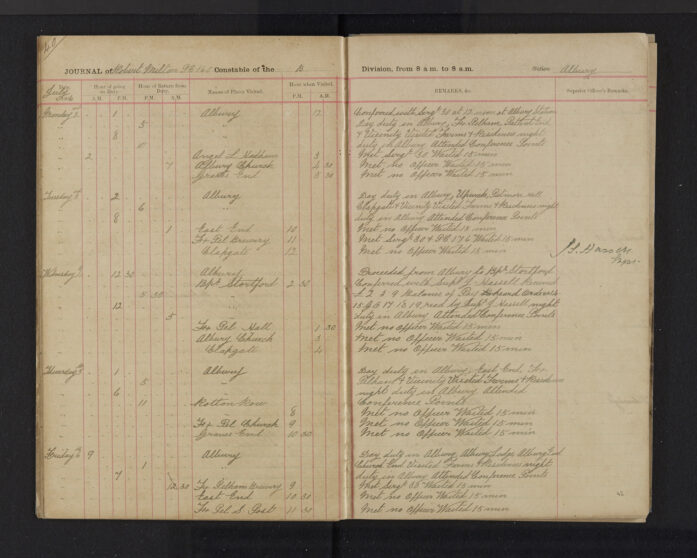 40
JOURNAL of Robert Milton PC 165 Constable of the B Division, from 8 a.m. to 8 a.m. Station Albury
July
Hour of going on Duty. Hour of Return from Duty. Names of Places Visited. Hour when Visited. REMARKS, &c. Superior Officer's Remarks.
A.M. P.M. A.M. P.M. P.M. A.M.
Monday 1 Albury 12 Conferred with Sergt 30 at 12 noon at Albury Station
5 Day duty in Albury, Fx Pelham, Patient End
8 & Vicinity Visited Farms & Residences night
duty in Albury Attended Conference Points
2 3 Met Sergt 30 Waited 15 min
7 Albury Church 4 30 Met no officer Waited 15 min
Graves End 5 30 Met no Officer Waited 15 min
Tuesday 2 Albury Day duty in Albury, Upwick,
6 Clapgate & Vicinity Visited Farms & Residences night
8 duty in Albury Attended Conference Points
1 East End 10 Met no Officer Waited 15 min
Fx Pel Brewery 11 Met Sergt 30 & PC 176 Waited 15 min
Clapgate 12 Met no Officer Waited 15 min
Wednesday 12 30 Albury Proceeded from Albury to Bps Stortford
Bps Stortford 2 30 Conferred with Supt G Hassell
5 30 £ 2 2 9 Balance of Pay
12 15 & 17 & 19, read by Supt G Hassell night
5 duty in Albury Attended Conference Points
Fx Pel Hall 1 30 Met no officer Waited 15 min
Albury Church 3 Met no Officer Waited 15 min
Clapgate 4 Met no Officer Waited 15 min
Thursday 1 Albury Day duty in Albury, East End, Fx
5 Pelham & Vicinity Visited Farms & Residences
6 night duty in Albury Attended
11 Conference Points
Rotton Row 8 Met no Officer Waited 15 min
Fx Pel Church 9 Met no Officer Waited 15 min
Graves End 10 30 Met no Officer Waited 15 min
Friday 9 Albury Day duty in Albury, Albury Lodge, Albury End
1 Church End Visited Farms & Residences night
7 duty in Albury Attended Conference Points
12 30 Fx Pelham Brewery 9 Met Sergt 35 Waited 15 min
East End 10 30 Met no Officer Waited 15 min
Fx Pel S Post 11 30 Met no Officer Waited 15 min